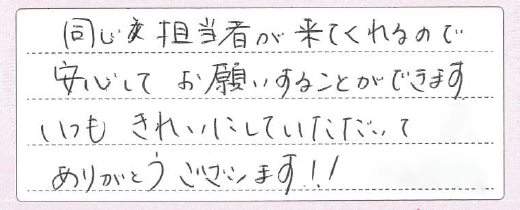 同じ担当者が来てくれるので
安心して お願いすることができます
いつも きれいにしていただいて
ありがとうございます!!